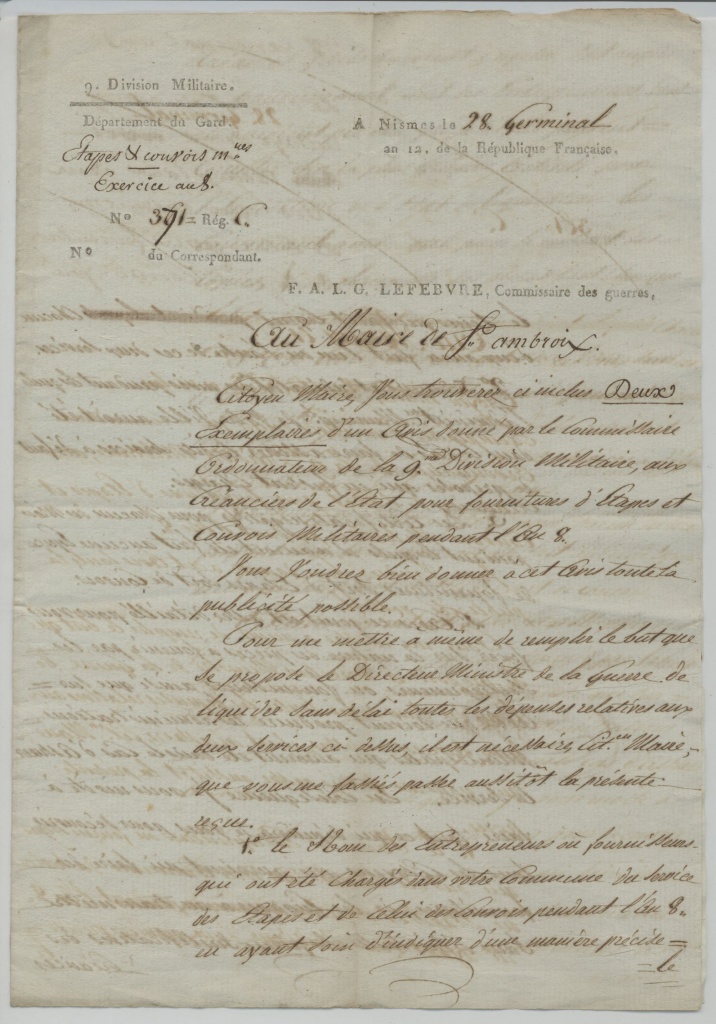 9. Division Militaire.
Département du Gard.
Etapes & convois m.res
Exercice an 8.
N° 391 = Rég. C.
N° du Correspondant.
A Nismes le 28. Germinal
an 12. de la République Française.
F. A. L. G. LEFEBVRE, Commissaire des guerres,
Au Maire de St. ambroix.
Citoyen Maire, Vous trouverez ci inclus Deux
Exemplaires d'un Avis donné par le Commissaire
Ordonnateur de la 9.me Division Militaire, aux
Créanciers de l'Etat pour fournitures d'Etapes et
Convois Militaires pendant l'An 8.
Vous Voudrez bien donner a cet Avis toute la
publicité possible.
Pour me mettre à même de remplir le but que
se propose le Directeur Ministre de la Guerre de
liquider sans délai toutes les dépenses relatives aux
deux services ci dessus, il est nécessaire, Cit.en Maire,
que vous me fassiés passer aussitôt la présente
reçue.
1.° le Nom des Entrepreneurs où fournisseurs
qui ont été Chargés dans votre Commune du Service
des Etapes et de Celui des Convois pendant l'An 8.
en ayant soin d'indiquer d'une manière précise =
= le